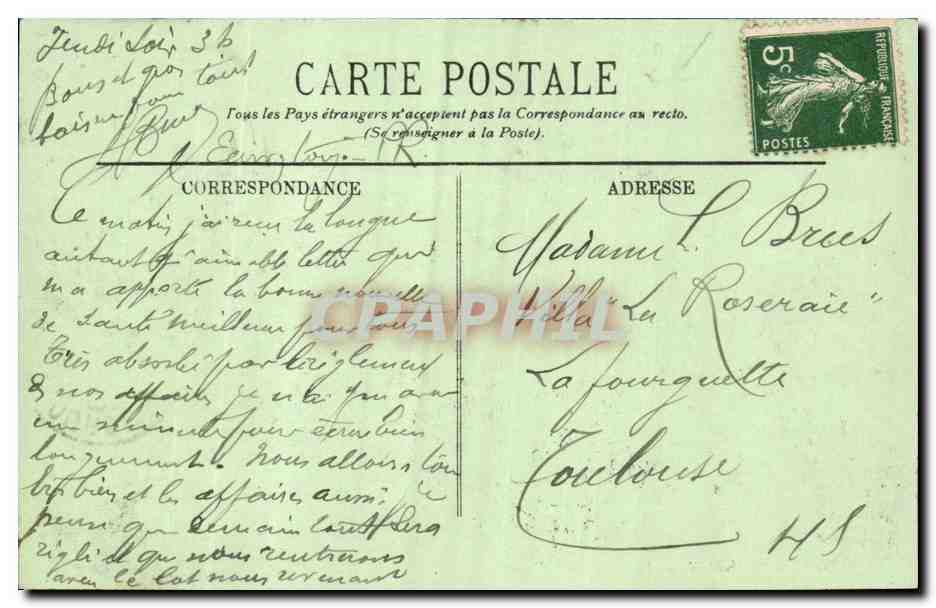 Jeudi soir 3h
Bons et gros
baisers pour tous
CARTE POSTALE
Tous les Pays étrangers n'acceptent pas la Correspondance au recto.
(Se renseigner à la Poste).
CORRESPONDANCE
ADRESSE
REPUBLIQUE FRANÇAISE
5c
POSTES
Ce matin j'ai reçu ta longue
autant qu'aimable lettre qui
m'a apporté la bonne nouvelle
de santé meilleure pour tous
Très absorbé par le règlement
de nos affaires je n'ai
une minute pour écrire bien
longuement. Nous allons tous
très bien et les affaires aussi. je
pense que demain tout sera
réglé et que nous rentrerons
avec le lot nous revenant
Madame L. Brees
Villa "La Roseraie"
Lafourguette
Toulouse
CPAPHIL